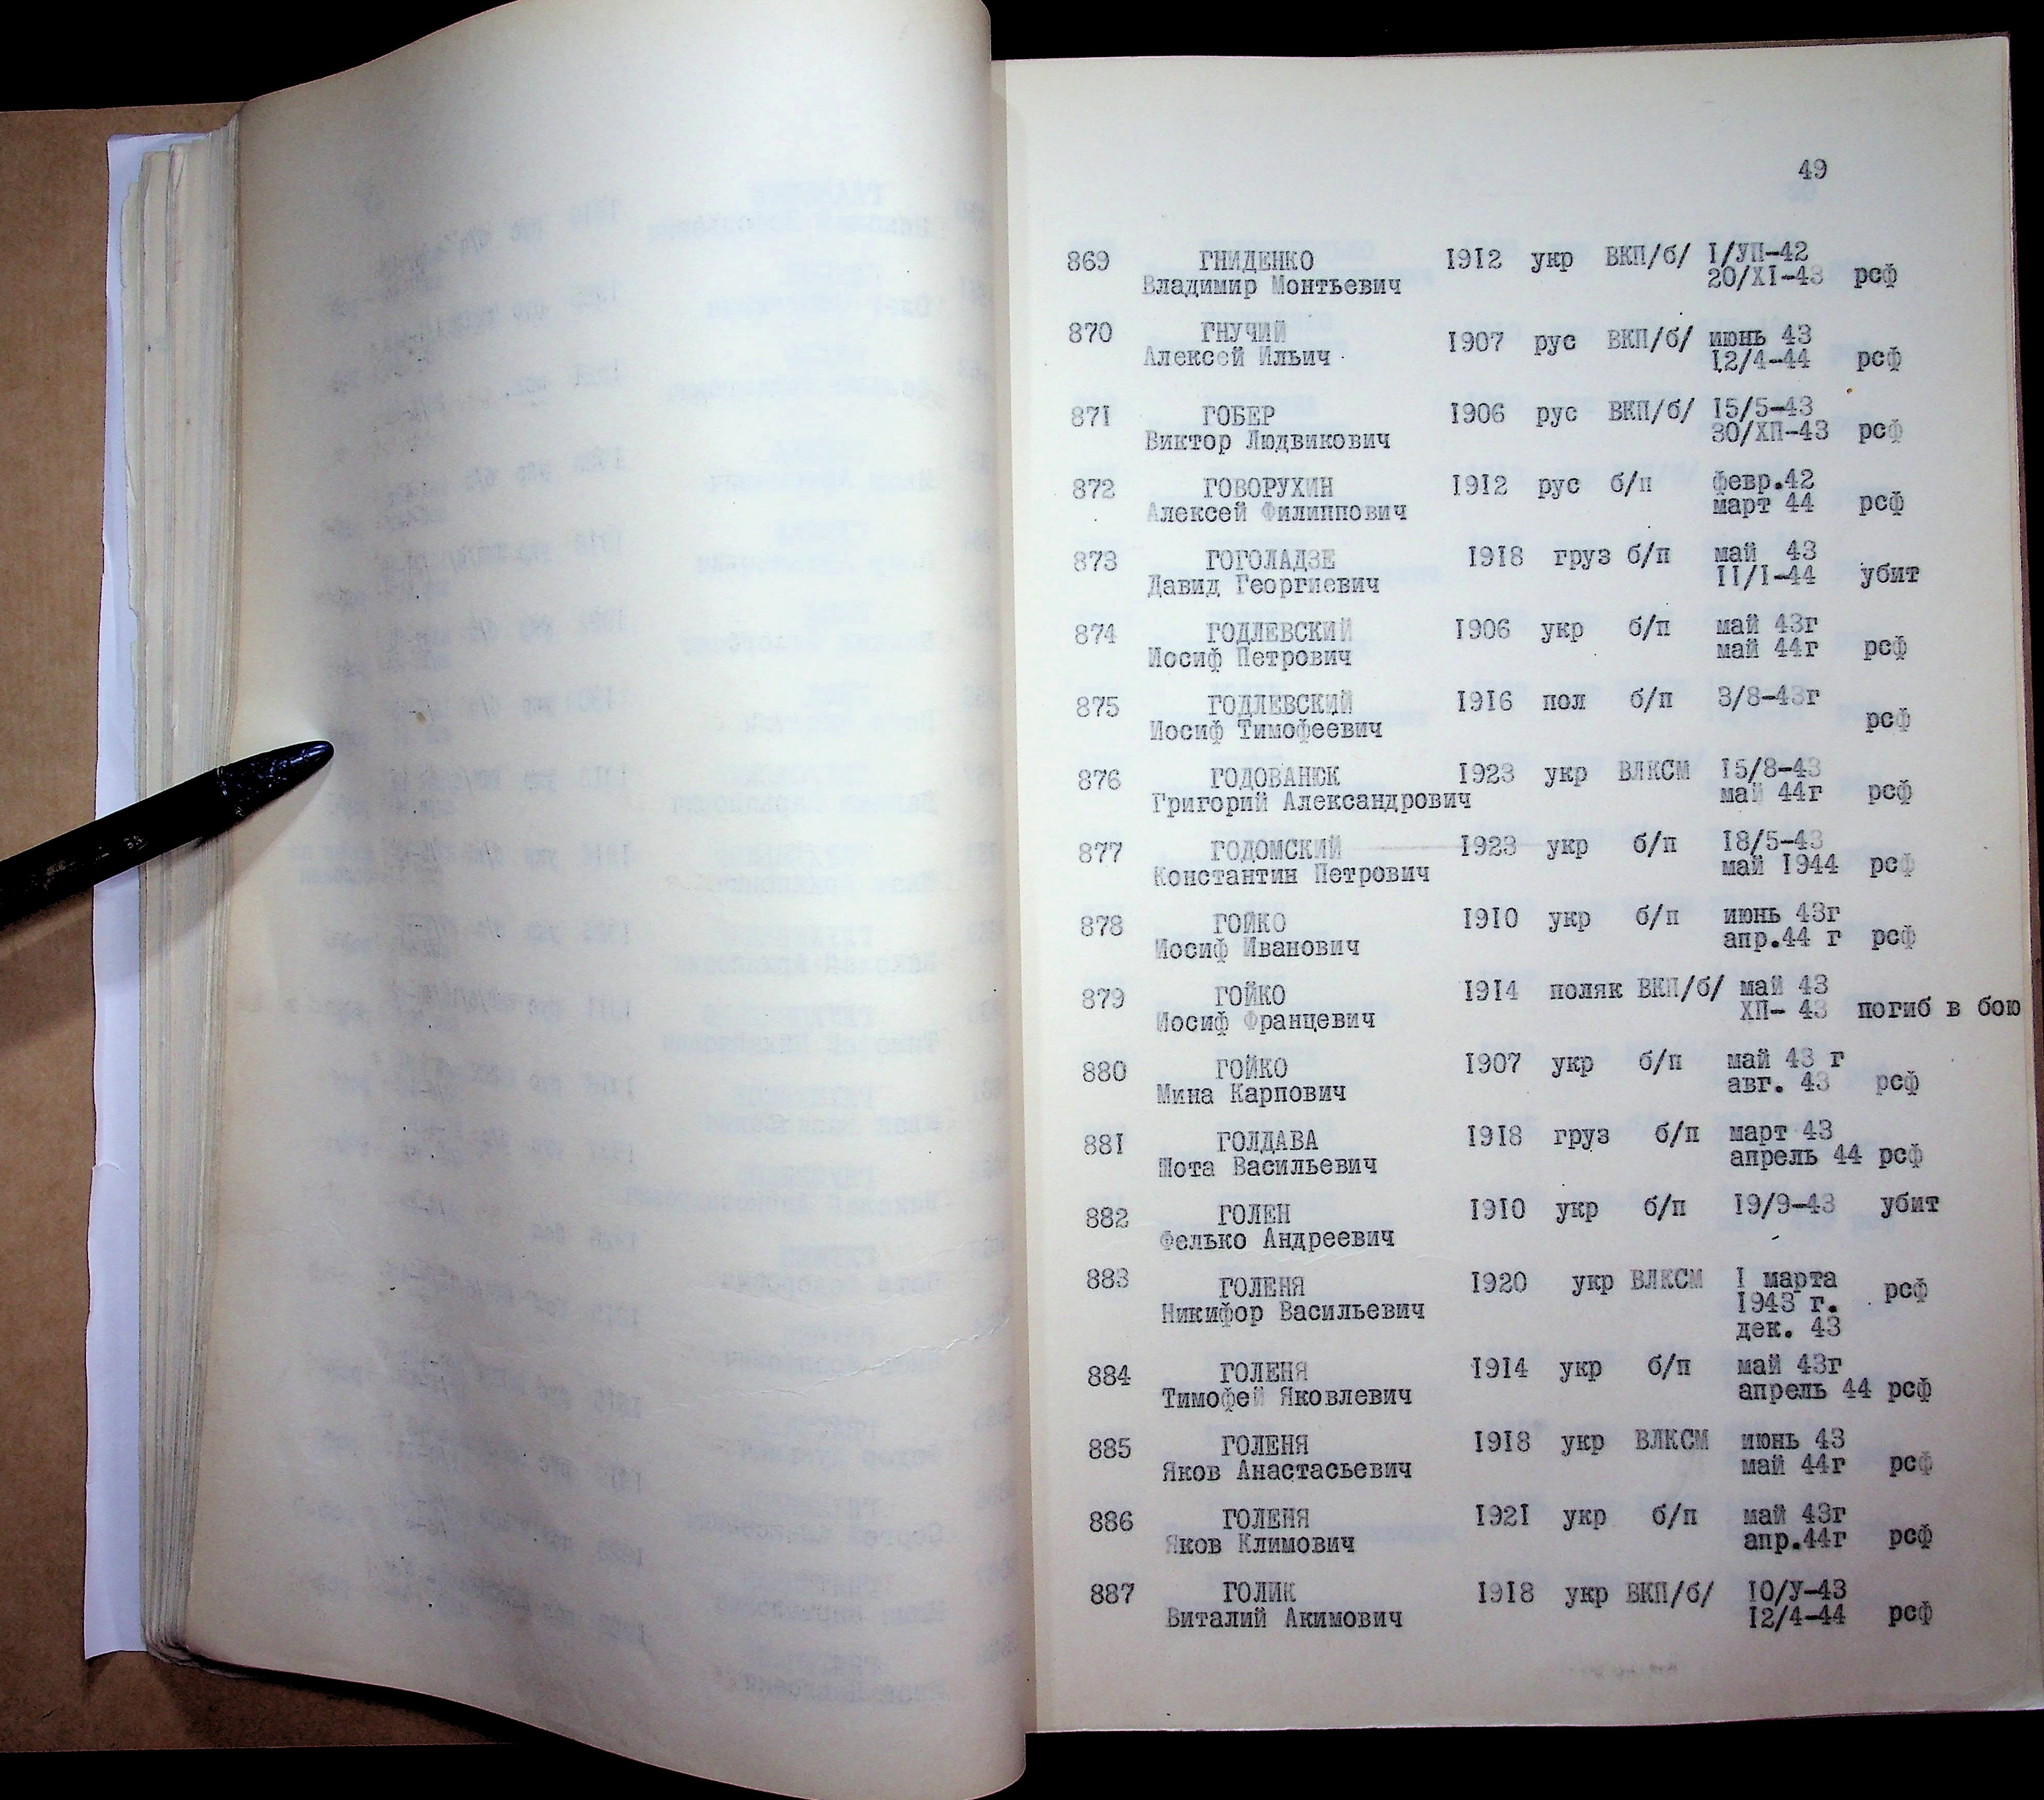 49
869 ГНИДЕНКО 1912 укр ВКП/б/ I/УП-42
Владимир Монтьевич 20/XI-43 рсф
870 ГНУЧИЙ 1907 рус ВКП/б/ июнь 43
Алексей Ильич 12/4-44 рсф
871 ГОБЕР 1906 рус ВКП/б/ 15/5-43
Виктор Людвикович 30/ХП-43 рсф
872 ГОВОРУХИН 1912 рус б/п февр.42
Алексей Филиппович март 44 рсф
873 ГОГОЛАДЗЕ 1918 груз б/п май 43
Давид Георгиевич II/I-44 убит
874 ГОДЛЕВСКИЙ 1906 укр б/п май 43г
Иосиф Петрович май 44г рсф
875 ГОДЛЕВСКИЙ 1916 пол б/п 3/8-43г
Иосиф Тимофеевич рсф
876 ГОДОВАНЮК 1923 укр ВЛКСМ 15/8-43
Григорий Александрович май 44г рсф
877 ГОДОМСКИЙ 1923 укр б/п 18/5-43
Константин Петрович май 1944 рсф
878 ГОЙКО 1910 укр б/п июнь 43г
Иосиф Иванович апр.44 г рсф
879 ГОЙКО 1914 поляк ВКП/б/ май 43
Иосиф Францевич ХП- 43 погиб в бою
880 ГОЙКО 1907 укр б/п май 43 г
Мина Карпович авг. 43 рсф
881 ГОЛДАВА 1918 груз б/п март 43
Шота Васильевич апрель 44 рсф
882 ГОЛЕН 1910 укр б/п 19/9-43 убит
Фелько Андреевич
883 ГОЛЕНЯ 1920 укр ВЛКСМ I марта рсф
Никифор Васильевич 1943 г.
дек. 43
884 ГОЛЕНЯ 1914 укр б/п май 43г
Тимофей Яковлевич апрель 44 рсф
885 ГОЛЕНЯ 1918 укр ВЛКСМ июнь 43
Яков Анастасьевич май 44г рсф
886 ГОЛЕНЯ 1921 укр б/п май 43г
Яков Климович апр.44г рсф
887 ГОЛИК 1918 укр ВКП/б/ 10/У-43
Виталий Акимович 12/4-44 рсф